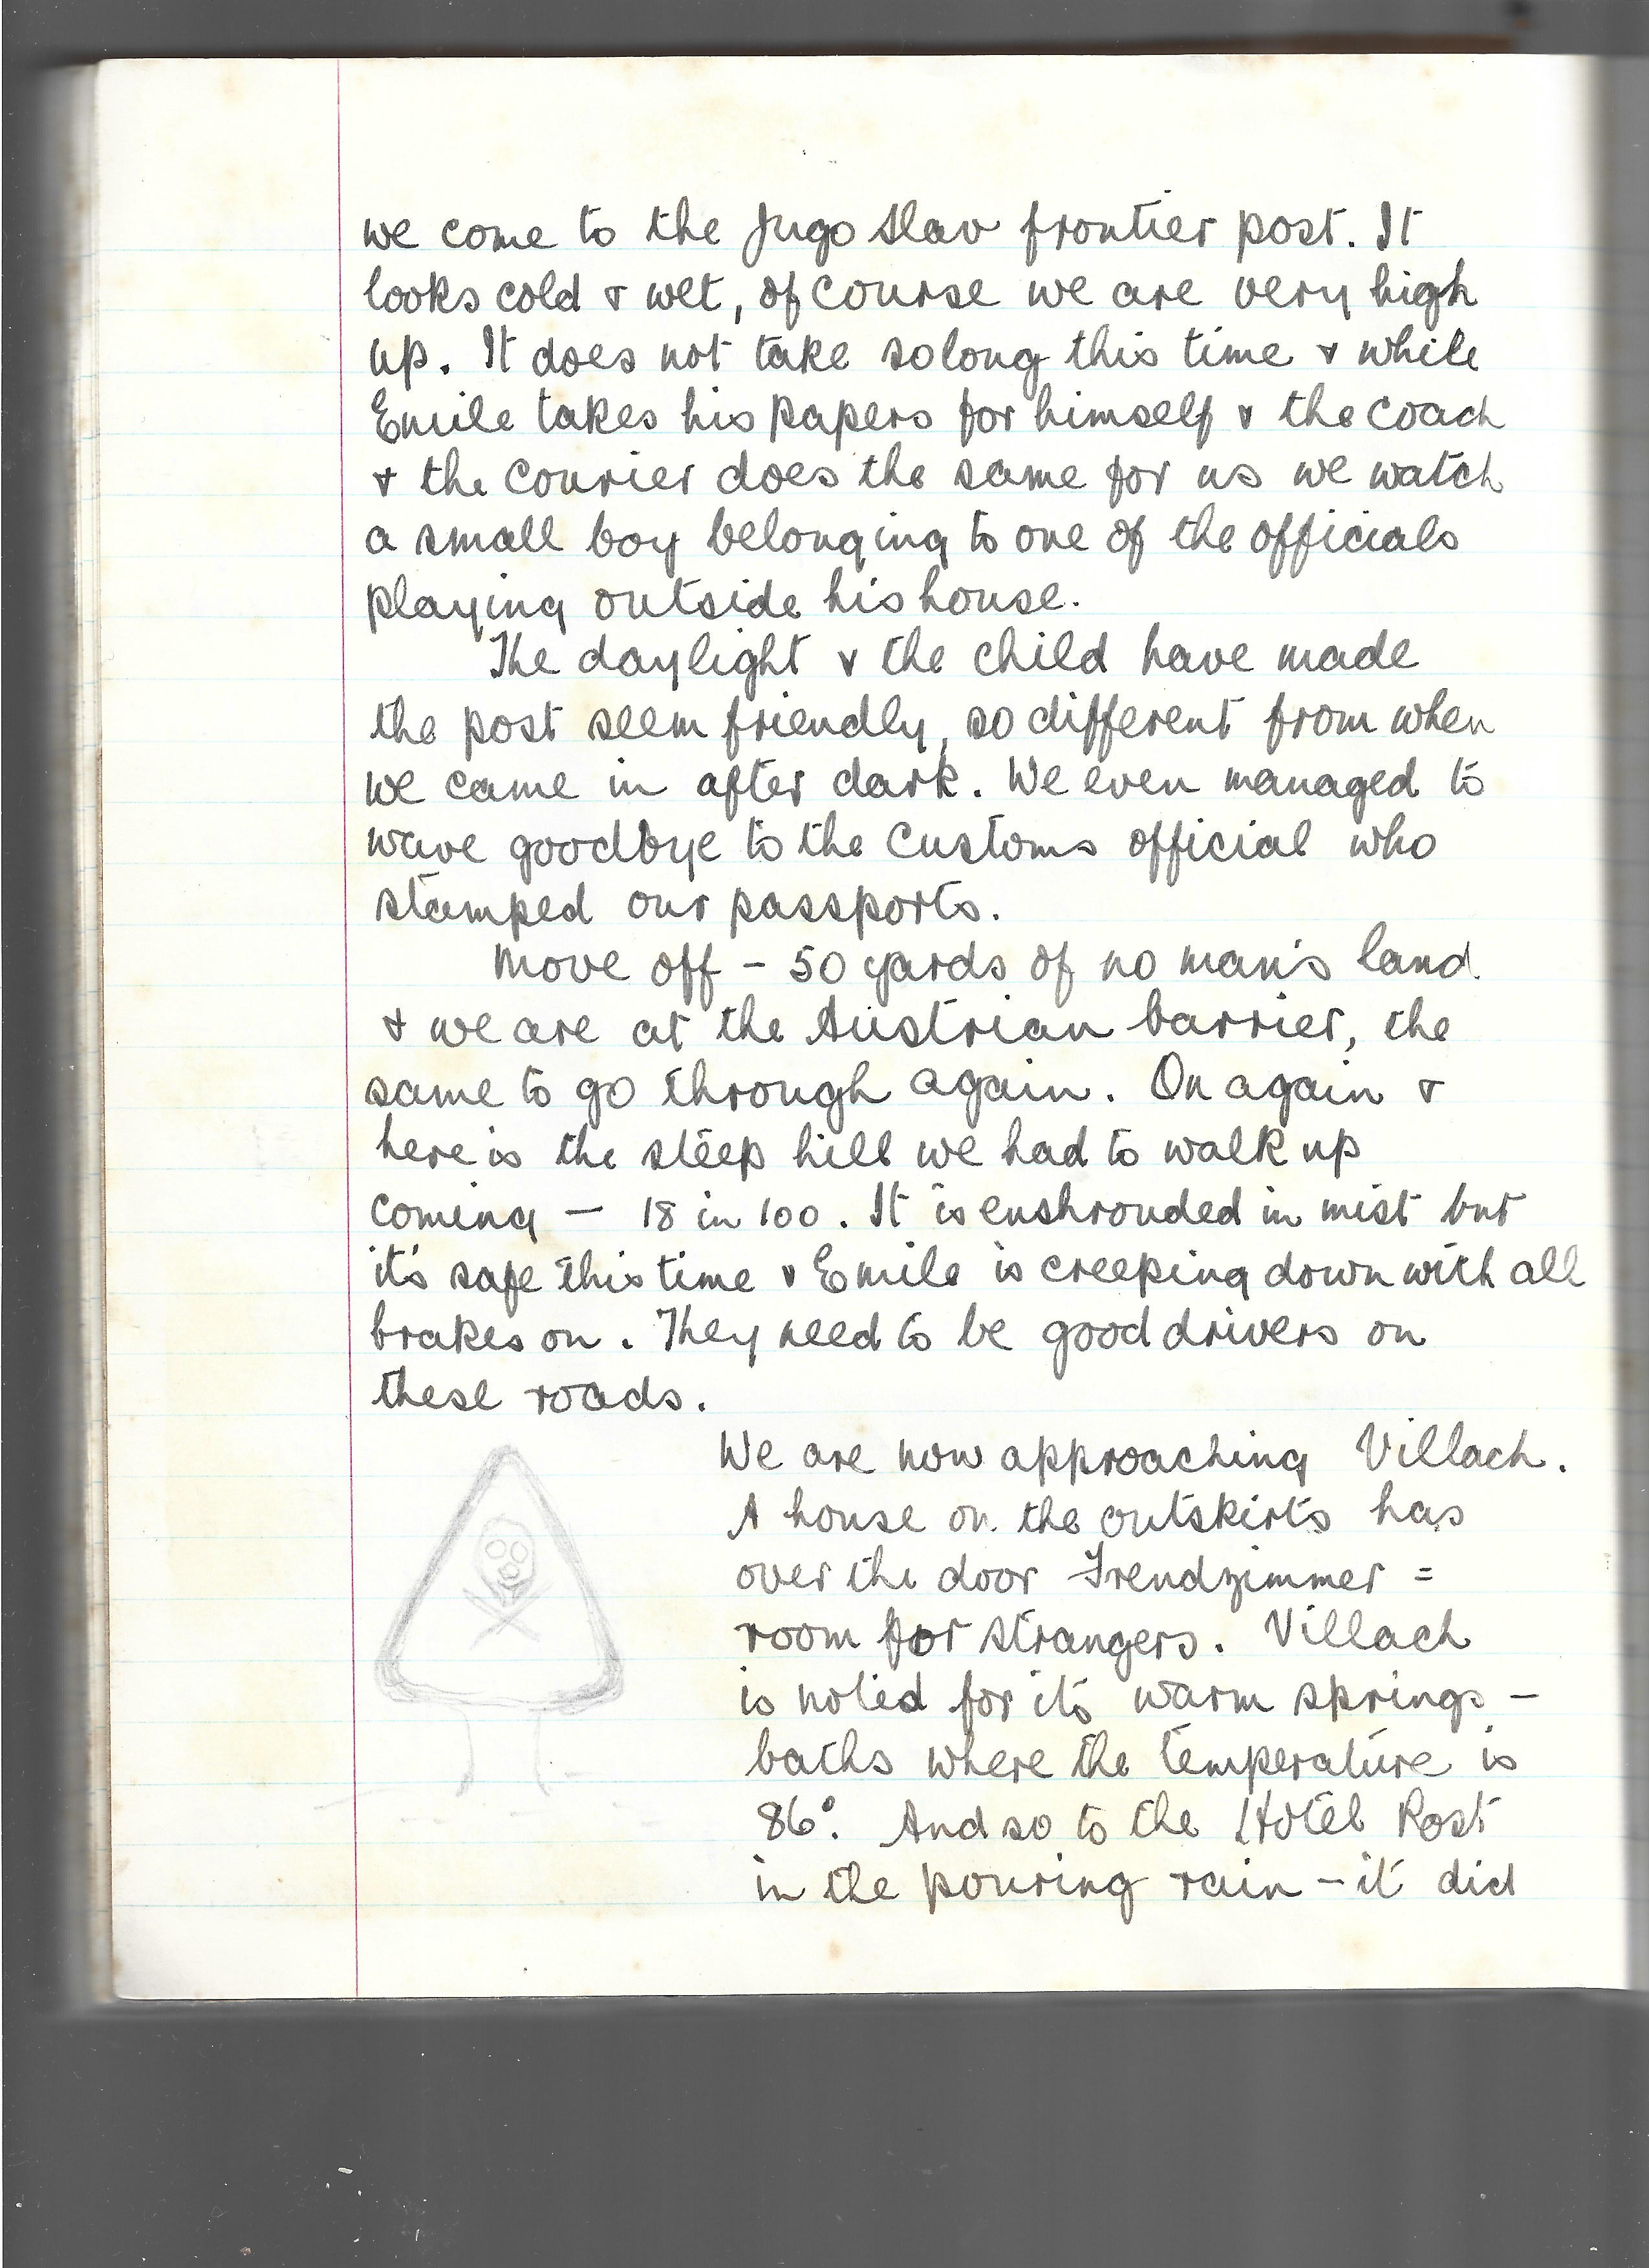 we come to the Jugo Slav frontier post. It
looks cold & wet, of course we are very high
up. It does not take so long this time & while
Emile takes his papers for himself & the coach
& the courier does the same for us we watch
a small boy belonging to one of the officials
playing outside his house.
The daylight & the child have made
the post seem friendly, so different from when
we came in after dark. We even managed to
wave goodbye to the customs official who
stamped our passports.
Move off - 50 yards of no man's land
& we are at the Austrian barrier, the
same to go through again. On again &
here is the steep hill we had to walk up
coming - 18 in 100. It is enshrouded in mist but
it's safe this time & Emile is creeping down with all
brakes on. They need to be good drivers on
these roads.
We are now approaching Villach.
A house on the outskirts has
over the door Fremdzimmer =
room for strangers. Villach
is noted for its warm springs -
baths where the temperature is
86°. And so to the Hotel Post
in the pouring rain - it did